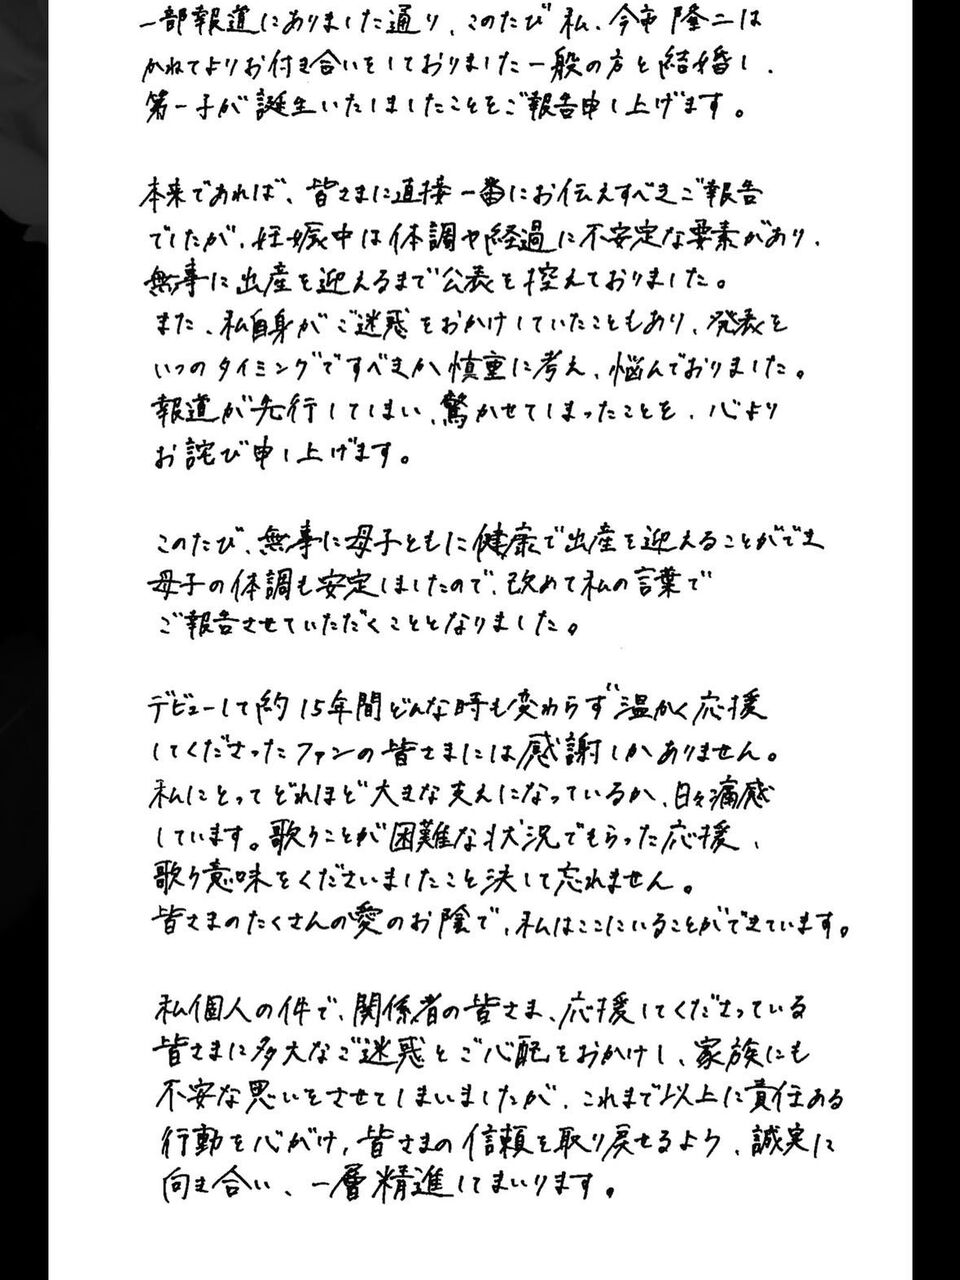 一部報道にありました通り、このたび私、今市隆二は
かねてよりお付き合いをしておりました一般の方と結婚し、
第一子が誕生いたしましたことをご報告申し上げます。
本来であれば、皆さまに直接一番にお伝えすべきご報告
でしたが、妊娠中は体調や経過に不安定な要素があり、
無事に出産を迎えるまで公表を控えておりました。
また、私自身がご迷惑をおかけしていたこともあり、発表を
いつのタイミングですべきか慎重に考え、悩んでおりました。
報道が先行してしまい、驚かせてしまったことを、心より
お詫び申し上げます。
このたび、無事に母子ともに健康で出産を迎えることができ
母子の体調も安定しましたので、改めて私の言葉で
ご報告させていただくこととなりました。
デビューして約15年間どんな時も変わらず温かく応援
してくださったファンの皆さまには感謝しかありません。
私にとってどれほど大きな支えになっているか、日々痛感
しています。歌うことが困難な状況でもらった応援、
歌う意味をくださいましたこと決して忘れません。
皆さまのたくさんの愛のお陰で、私はここにいることができています。
私個人の件で、関係者の皆さま、応援してくださっている
皆さまに多大なご迷惑とご心配をおかけし、家族にも
不安な思いをさせてしまいましたが、これまで以上に責任ある
行動を心がけ、皆さまの信頼を取り戻せるよう、誠実に
向き合い、一層精進してまいります。